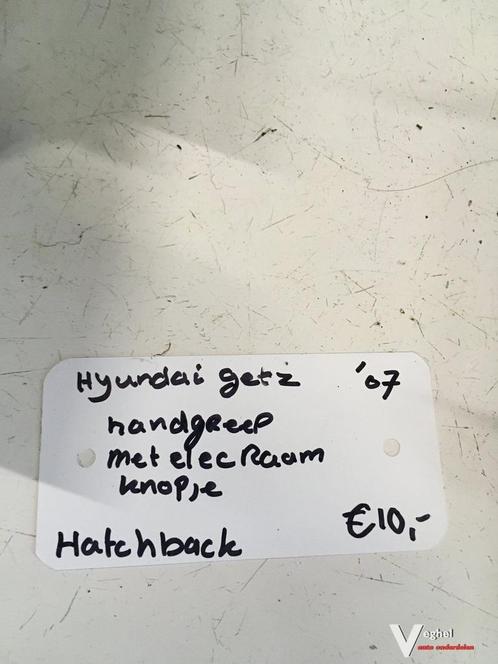 Hyundai getz '07
handgreep
met elec Raam
knopje
€10,-
Hatchback
Veghel
auto onderdelen